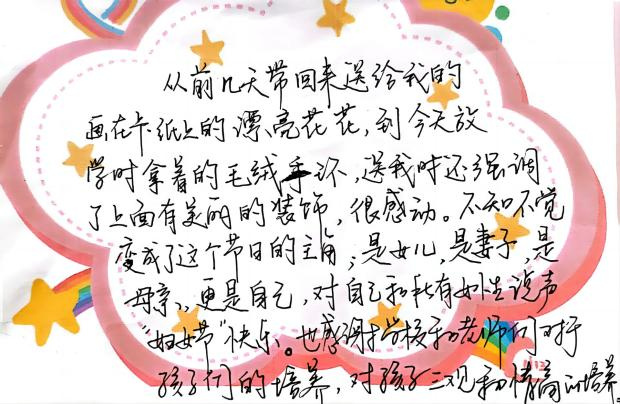 从前几天带回来送给我的
画在卡纸上的漂亮花花，到今天放
学时拿着的毛绒手环，送我时还强调
了上面有美丽的装饰，很感动。不知不觉
变成了这个节日的主角；是女儿，是妻子，是
母亲，更是自己，对自己和所有女生说声
“妇女节”快乐。也感谢学校和老师们对于
孩子们的培养，对孩子三观和情商的培养